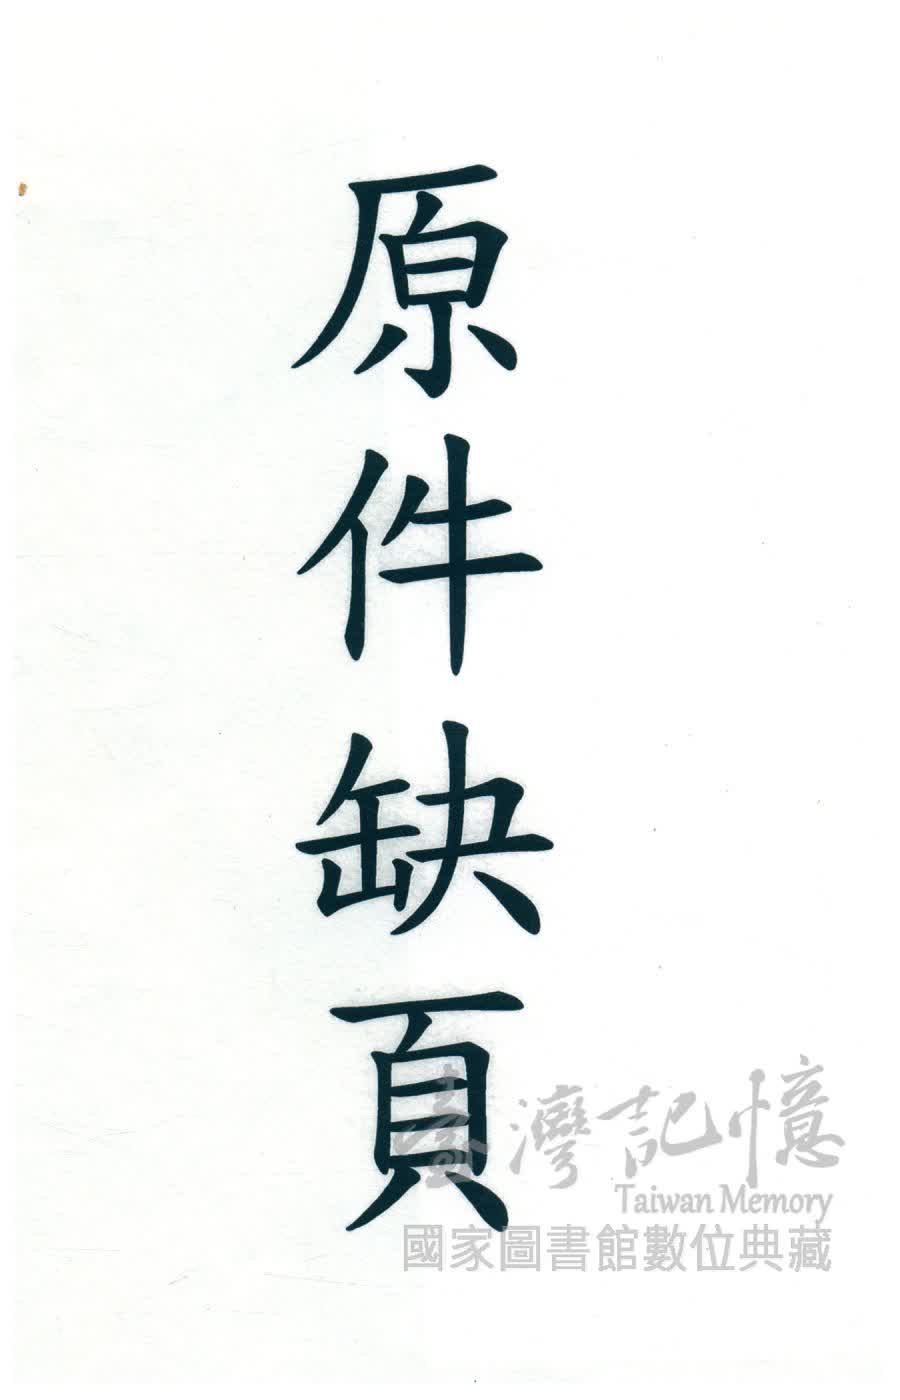 原件缺頁
臺灣記憶
Taiwan Memory
國家圖書館數位典藏